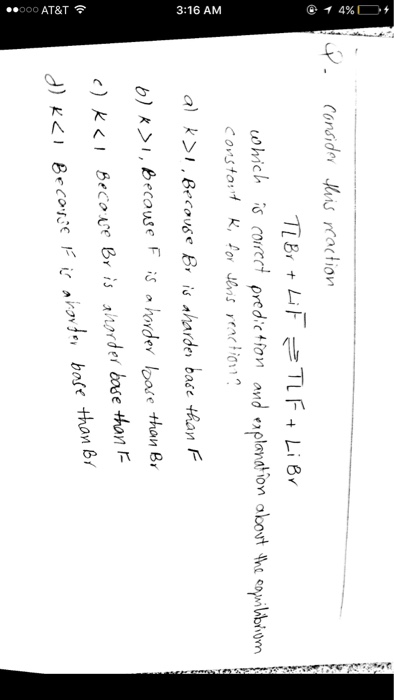 ●●○○○ AT&T 3:16 AM 4%
Q. Consider this reaction
TLBr + LiF ⇌ TLF + LiBr
which is correct prediction and explanation about the equilibrium
constant K, for this reaction?
a) K>1, Because Br is aharder base than F
b) K>1, Because F is a harder base than Br
c) K<1 Because Br is aharder base than F
d) K<1 Because F is aharder base than Br